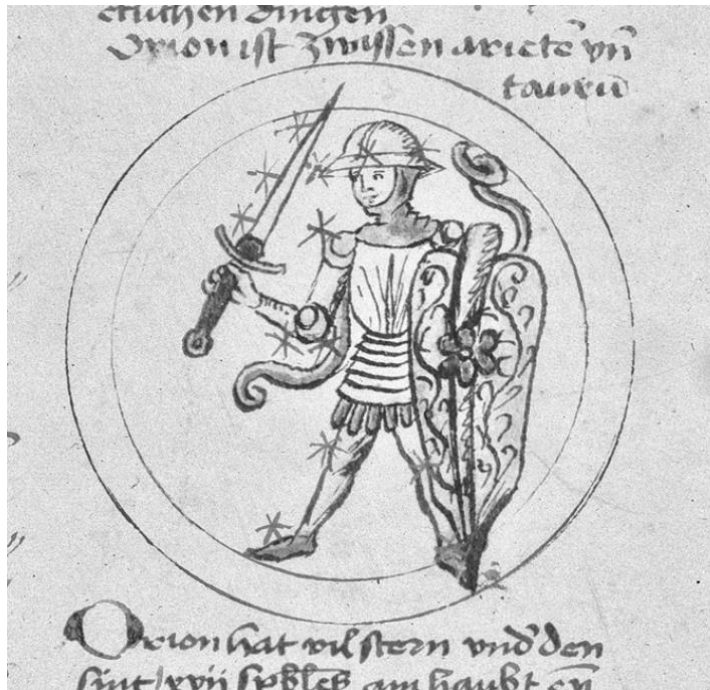 etlichen dingen
Orion ist zwissen arietē vn̄
taurū
Orion hat vil stern vnd den
sint xvij am haubt